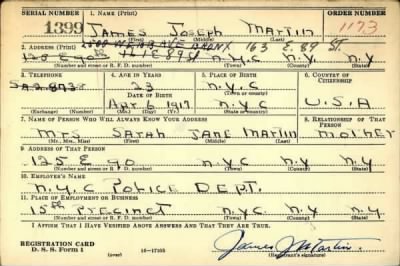 SERIAL NUMBER 1. NAME (Print) ORDER NUMBER
1399 JAMES JOSEPH MARTIN 1173
(First) (Middle) (Last)
2500 WEBB AVE BRONX 163 E. 89 ST.
2. ADDRESS (Print)
125 E 90th 411 E 89 St N.Y.C N.Y N.Y
(Number and street or R. F. D. number) (Town) (County) (State)
3. TELEPHONE 4. AGE IN YEARS 5. PLACE OF BIRTH 6. COUNTRY OF CITIZENSHIP
23 N.Y.C
DATE OF BIRTH (Town or county)
SA.2.8738 Apr 6 1917 N.Y.C U.S.A
(Exchange) (Number) (Mo.) (Day) (Yr.) (State or country)
7. NAME OF PERSON WHO WILL ALWAYS KNOW YOUR ADDRESS 8. RELATIONSHIP OF THAT PERSON
Mrs SARAh JANE MARTIN MOTHER
(Mr., Mrs., Miss) (First) (Middle) (Last)
9. ADDRESS OF THAT PERSON
125 E 90 N.Y.C N.Y N.Y
(Number and street or R. F. D. number) (Town) (County) (State)
10. EMPLOYER'S NAME
N.Y.C POLICE DEPT.
11. PLACE OF EMPLOYMENT OR BUSINESS
15th PRECINCT N.Y.C N.Y N.Y
(Number and street or R. F. D. number) (Town) (County) (State)
I AFFIRM THAT I HAVE VERIFIED ABOVE ANSWERS AND THAT THEY ARE TRUE.
REGISTRATION CARD
D. S. S. FORM 1 (over) 16-17105 James J Martin
(Registrant's signature)